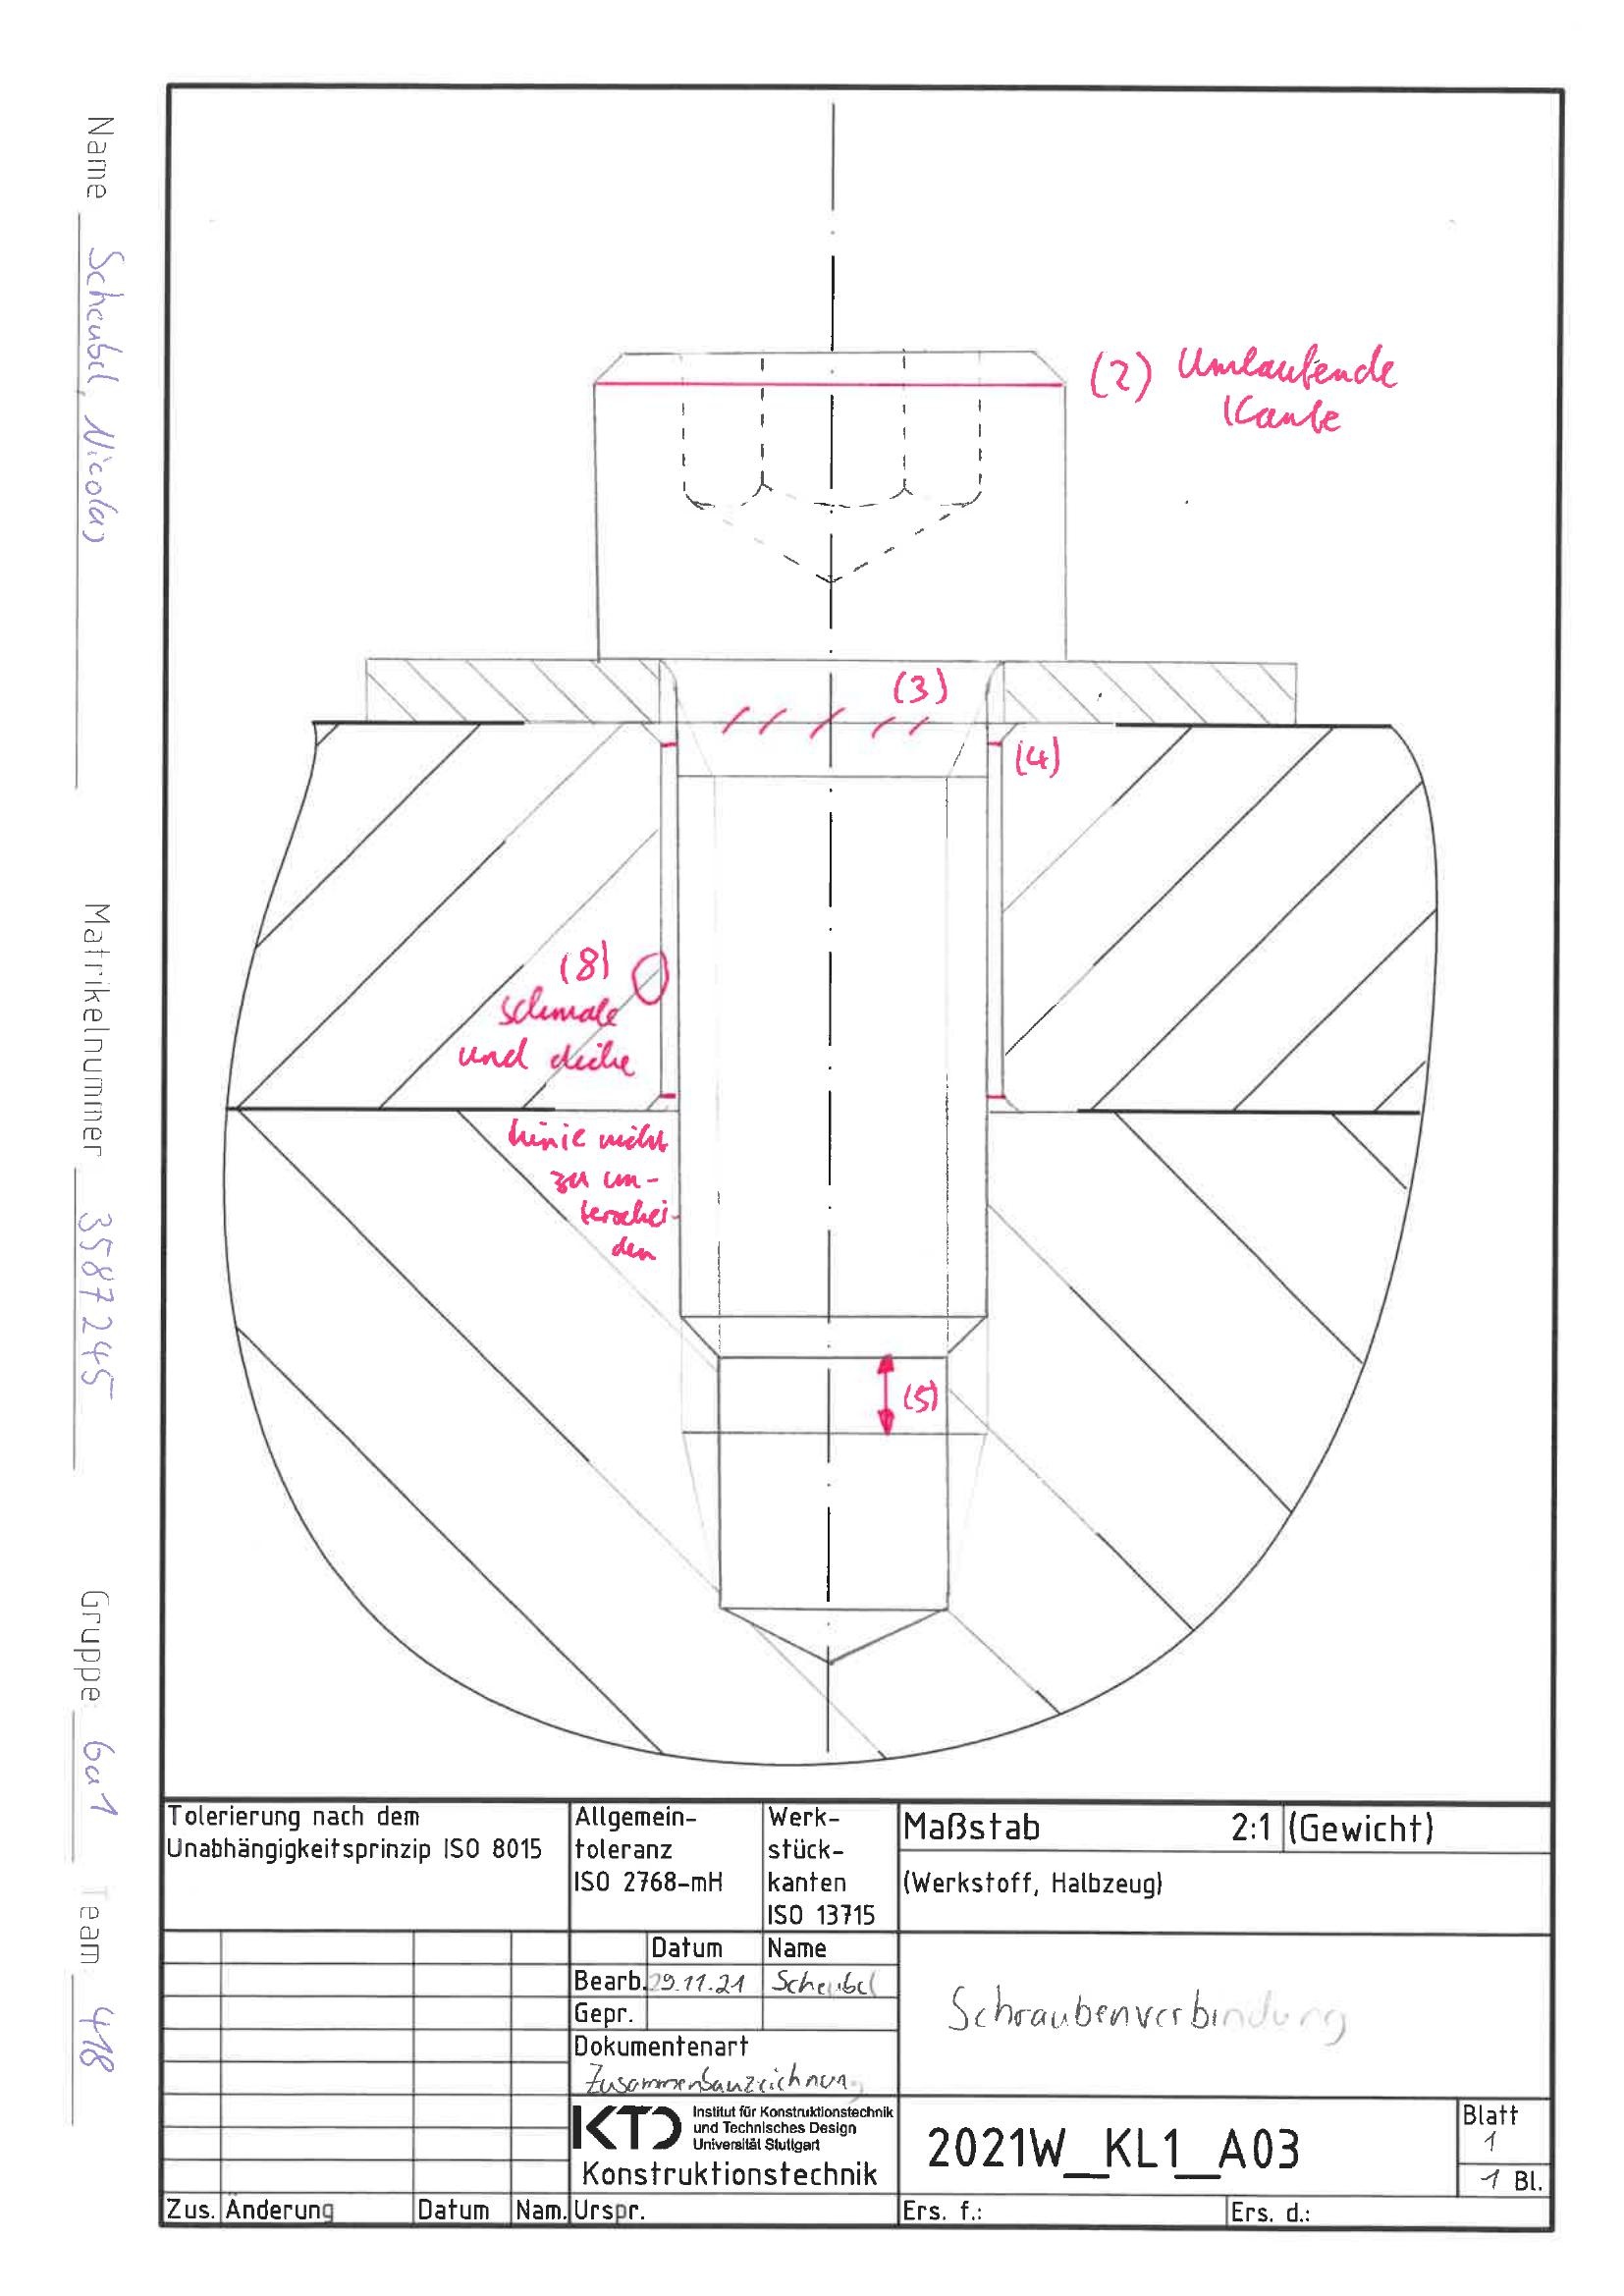 Name Scheubel, Nicolas
Matrikelnummer 3587245
Gruppe: 6a1 Team: 418
(2) Umlaufende
Kante
(3)
(4)
(8)
schmale
und dicke
Linie nicht
zu un-
terschei-
den
(5)
Tolerierung nach dem
Unabhängigkeitsprinzip ISO 8015
Allgemein-
toleranz
ISO 2768-mH
Werk-
stück-
kanten
ISO 13715
Maßstab 2:1 (Gewicht)
(Werkstoff, Halbzeug)
Datum Name
Bearb. 29.11.21 Scheubel
Gepr.
Dokumentenart
Zusammenbauzeichnung
Schraubenverbindung
KTD Institut für Konstruktionstechnik
und Technisches Design
Universität Stuttgart
Konstruktionstechnik
2021W_KL1_A03
Blatt
1
1 Bl.
Zus. Änderung Datum Nam. Urspr. Ers. f.: Ers. d.: